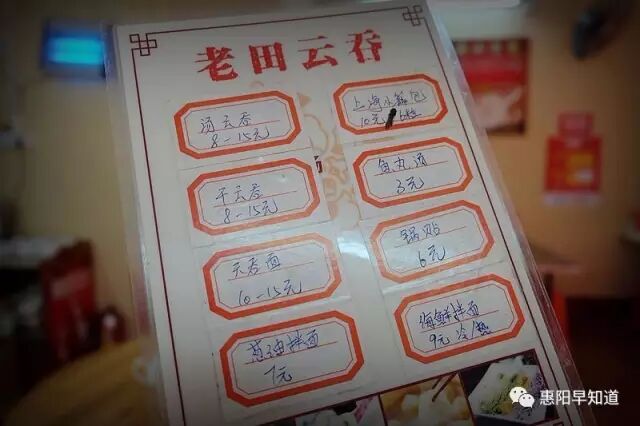 老田云吞
汤云吞
8-15元
上海小笼包
10元/6粒
干云吞
8-15元
鱼丸汤
3元
云吞面
10-15元
锅贴
6元
葱油拌面
7元
海鲜拌面
9元 冷/热
惠阳早知道